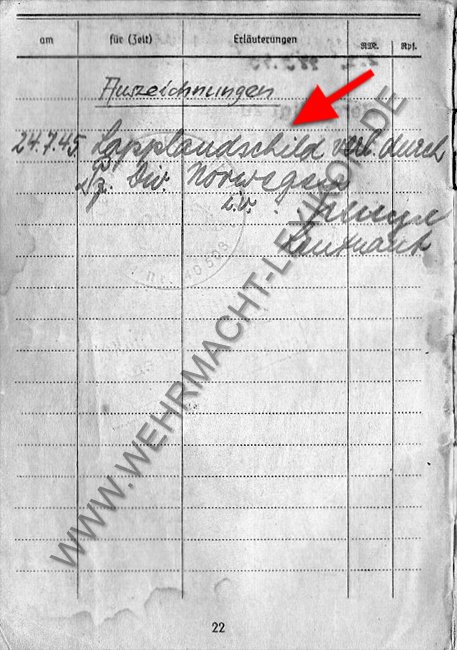 am für (Zeit) Erläuterungen RM. Rpf.
Auszeichnungen
24.7.45. Lapplandschild verl. durch
Div. Norwegen
i.V.
Leutnant
WWW.WEHRMACHT-LEXIKON.DE
22